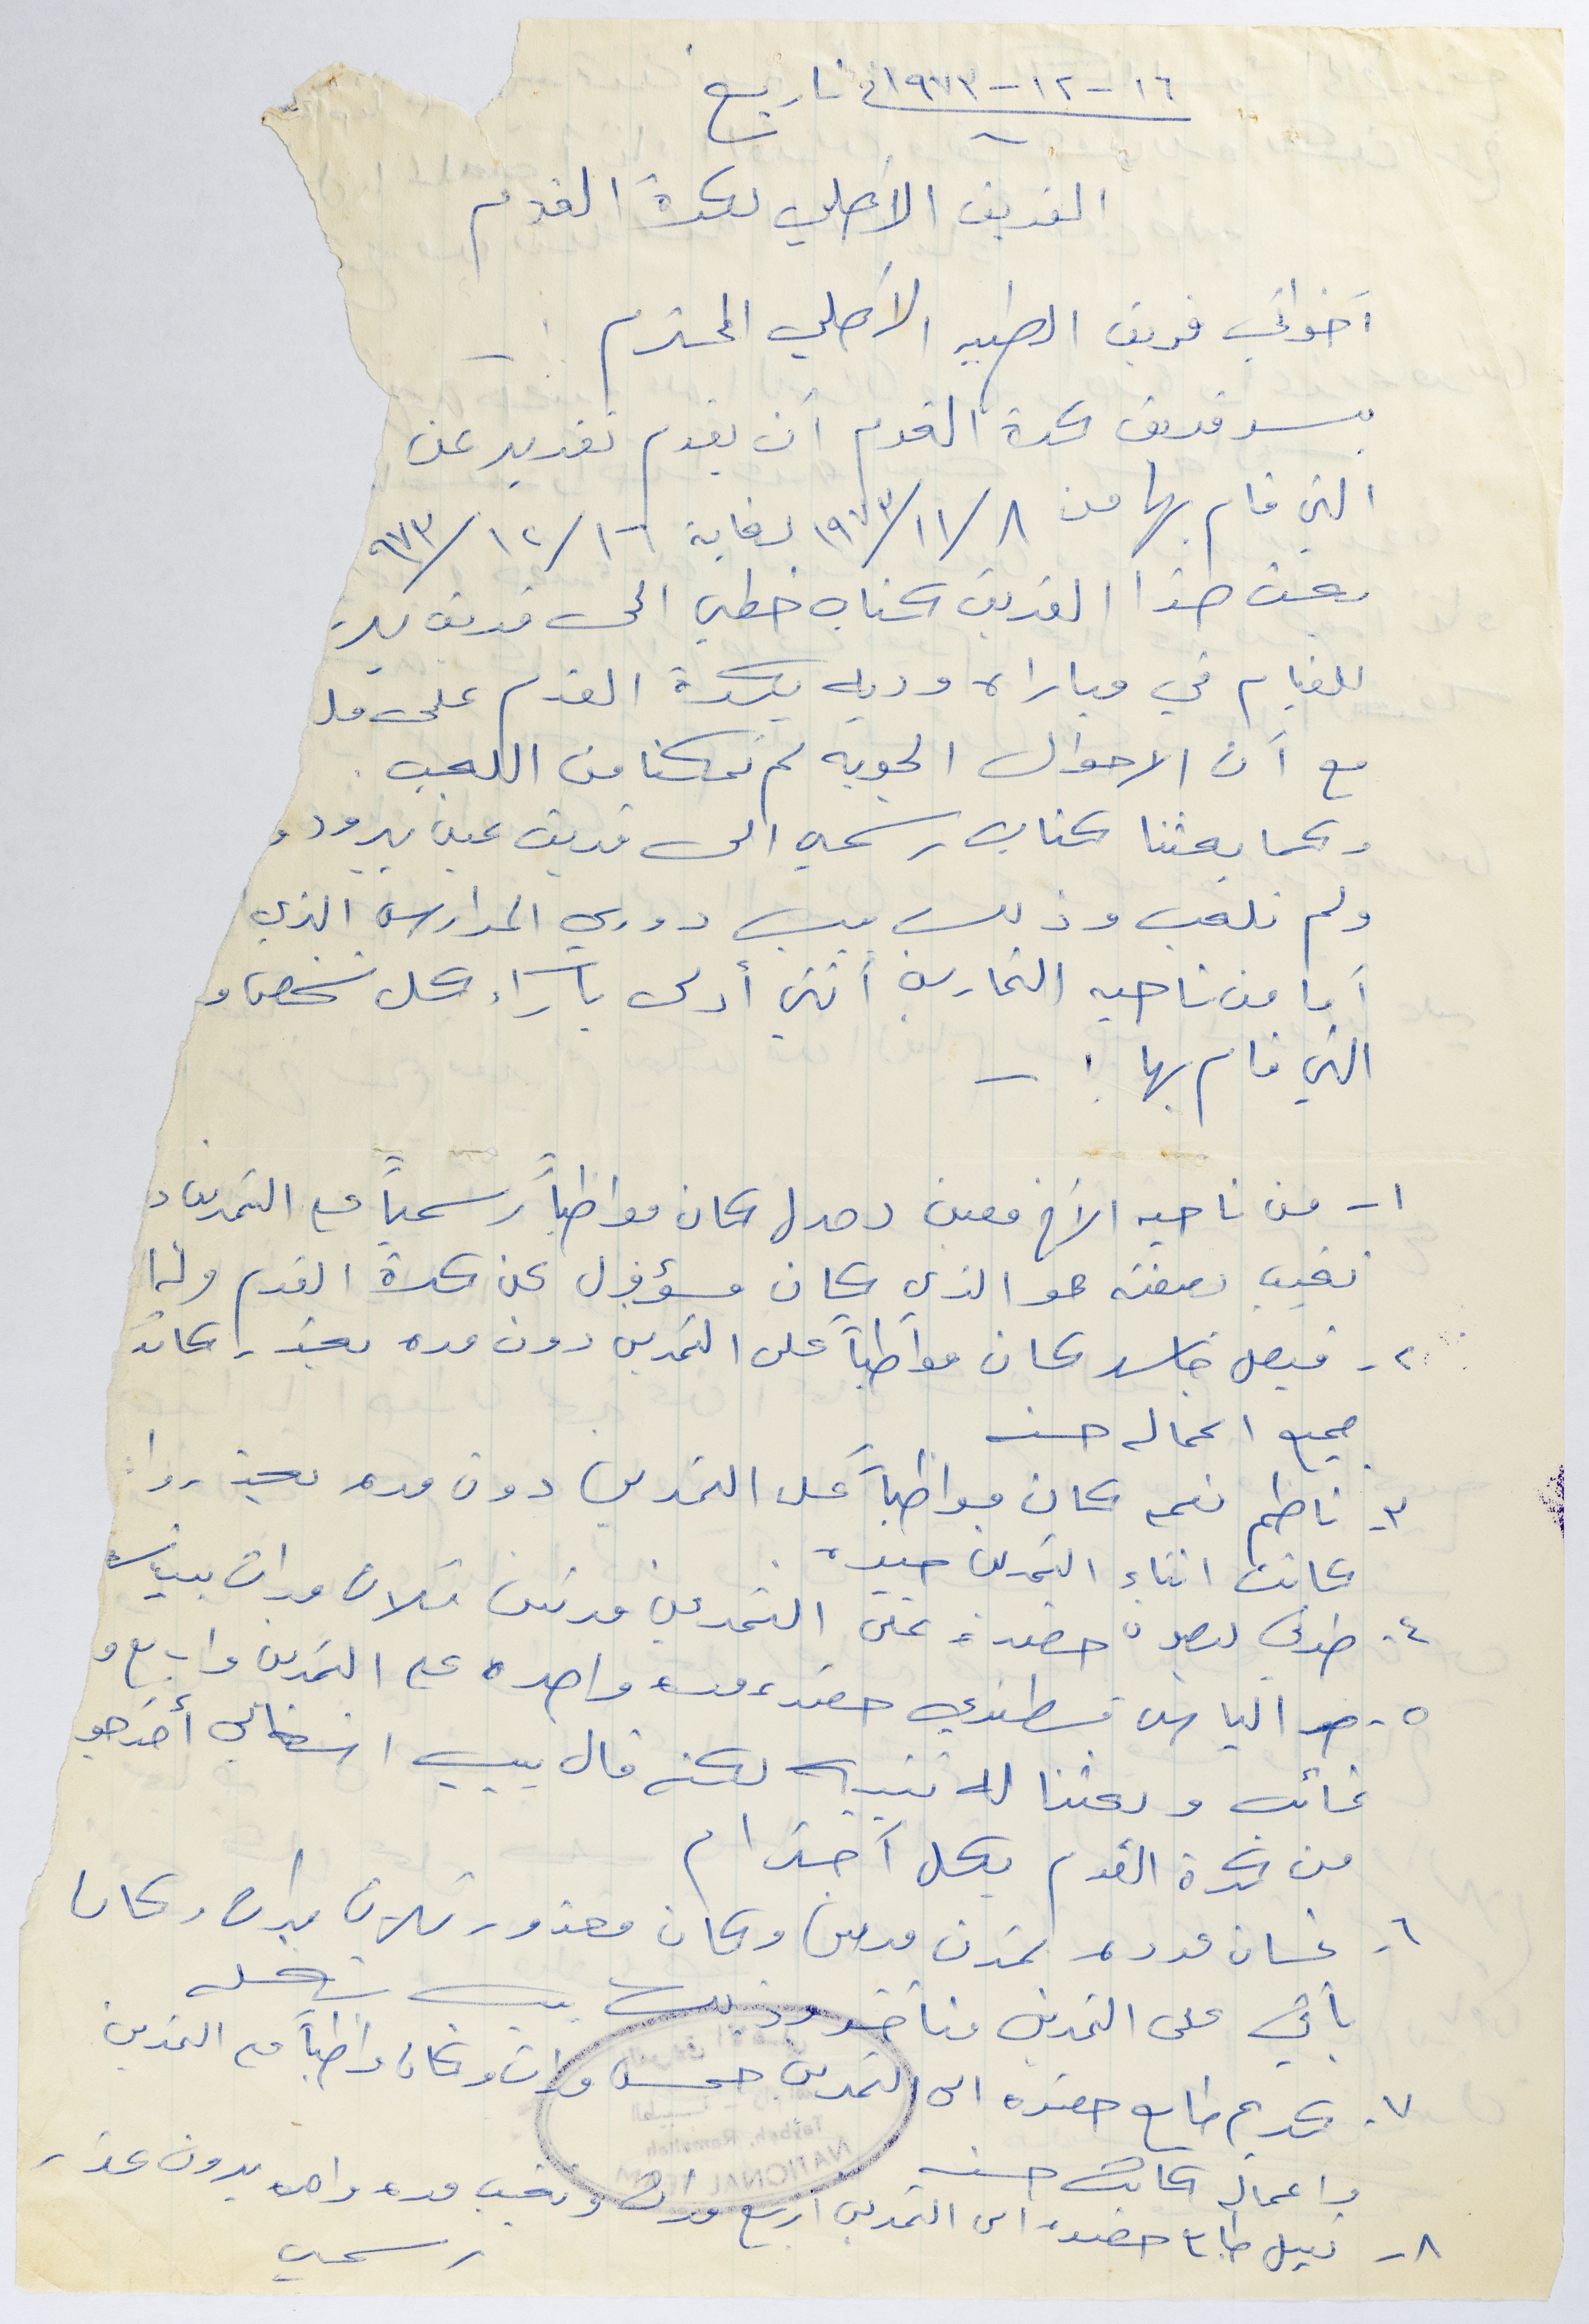 تاريخ ١٦-١٢-١٩٧٣
الفريق الأهلي لكرة القدم
أخواني فريق الطيبه الأهلي المحترم :-
يسر فريق كرة القدم أن يقدم تقرير عن
التي قام بها من ٨/١١/١٩٧٣ لغاية ١٦/١٢/٩٧٣
بعث هذا الفريق كتاب خطي الى فريق
للقيام في مباراه وديه بكرة القدم على
مع أن الاحوال الجويه لم تمكنا من اللعب
وكما بعثنا كتاب رسمي الى فريق عين يبرود و
ولم نلعب وذلك بسبب دوري المدارس الذي
أما من ناحيه التمارين أنني أدلى بآراء كل شخص و
التي قام بها :-
١- من ناحيه الأخ معين كان مواظباً رسمياً مع التمرين و
نقيب بصفته هو الذي كان مسؤول عن كرة القدم
٢- فيصل كان مواظباً على التمرين دون مره بعذر كانت
جميع اعماله حسنه
٣- ناظم نعمه كان مواظباً على التمرين دون مره بعذر
كانت اثناء التمرين جيده
٤- حضره على التمرين مرتين ثلاث مرات
٥- الياس قسطندي حضر مره واحده على التمرين واربع و
غائب وبعثنا له تنبيه لكنه قال بسبب اشغالي أخرجو
من كرة القدم بكل أحترام
٦- غسان تمرن مرتين وكان معذور ثلاث مرات وكان
يأتي على التمرين متأخر وذلك بسبب شغله
٧- كريم حضره الى التمرين خمس مرات وكان واظباً مع التمرين
واعماله كانت حسنه
٨- نبيل حضره الى التمرين اربع مرات وتغيب مره واحده بدون عذر
رسمي
Taybeh, Ramallah
NATIONAL TEAM